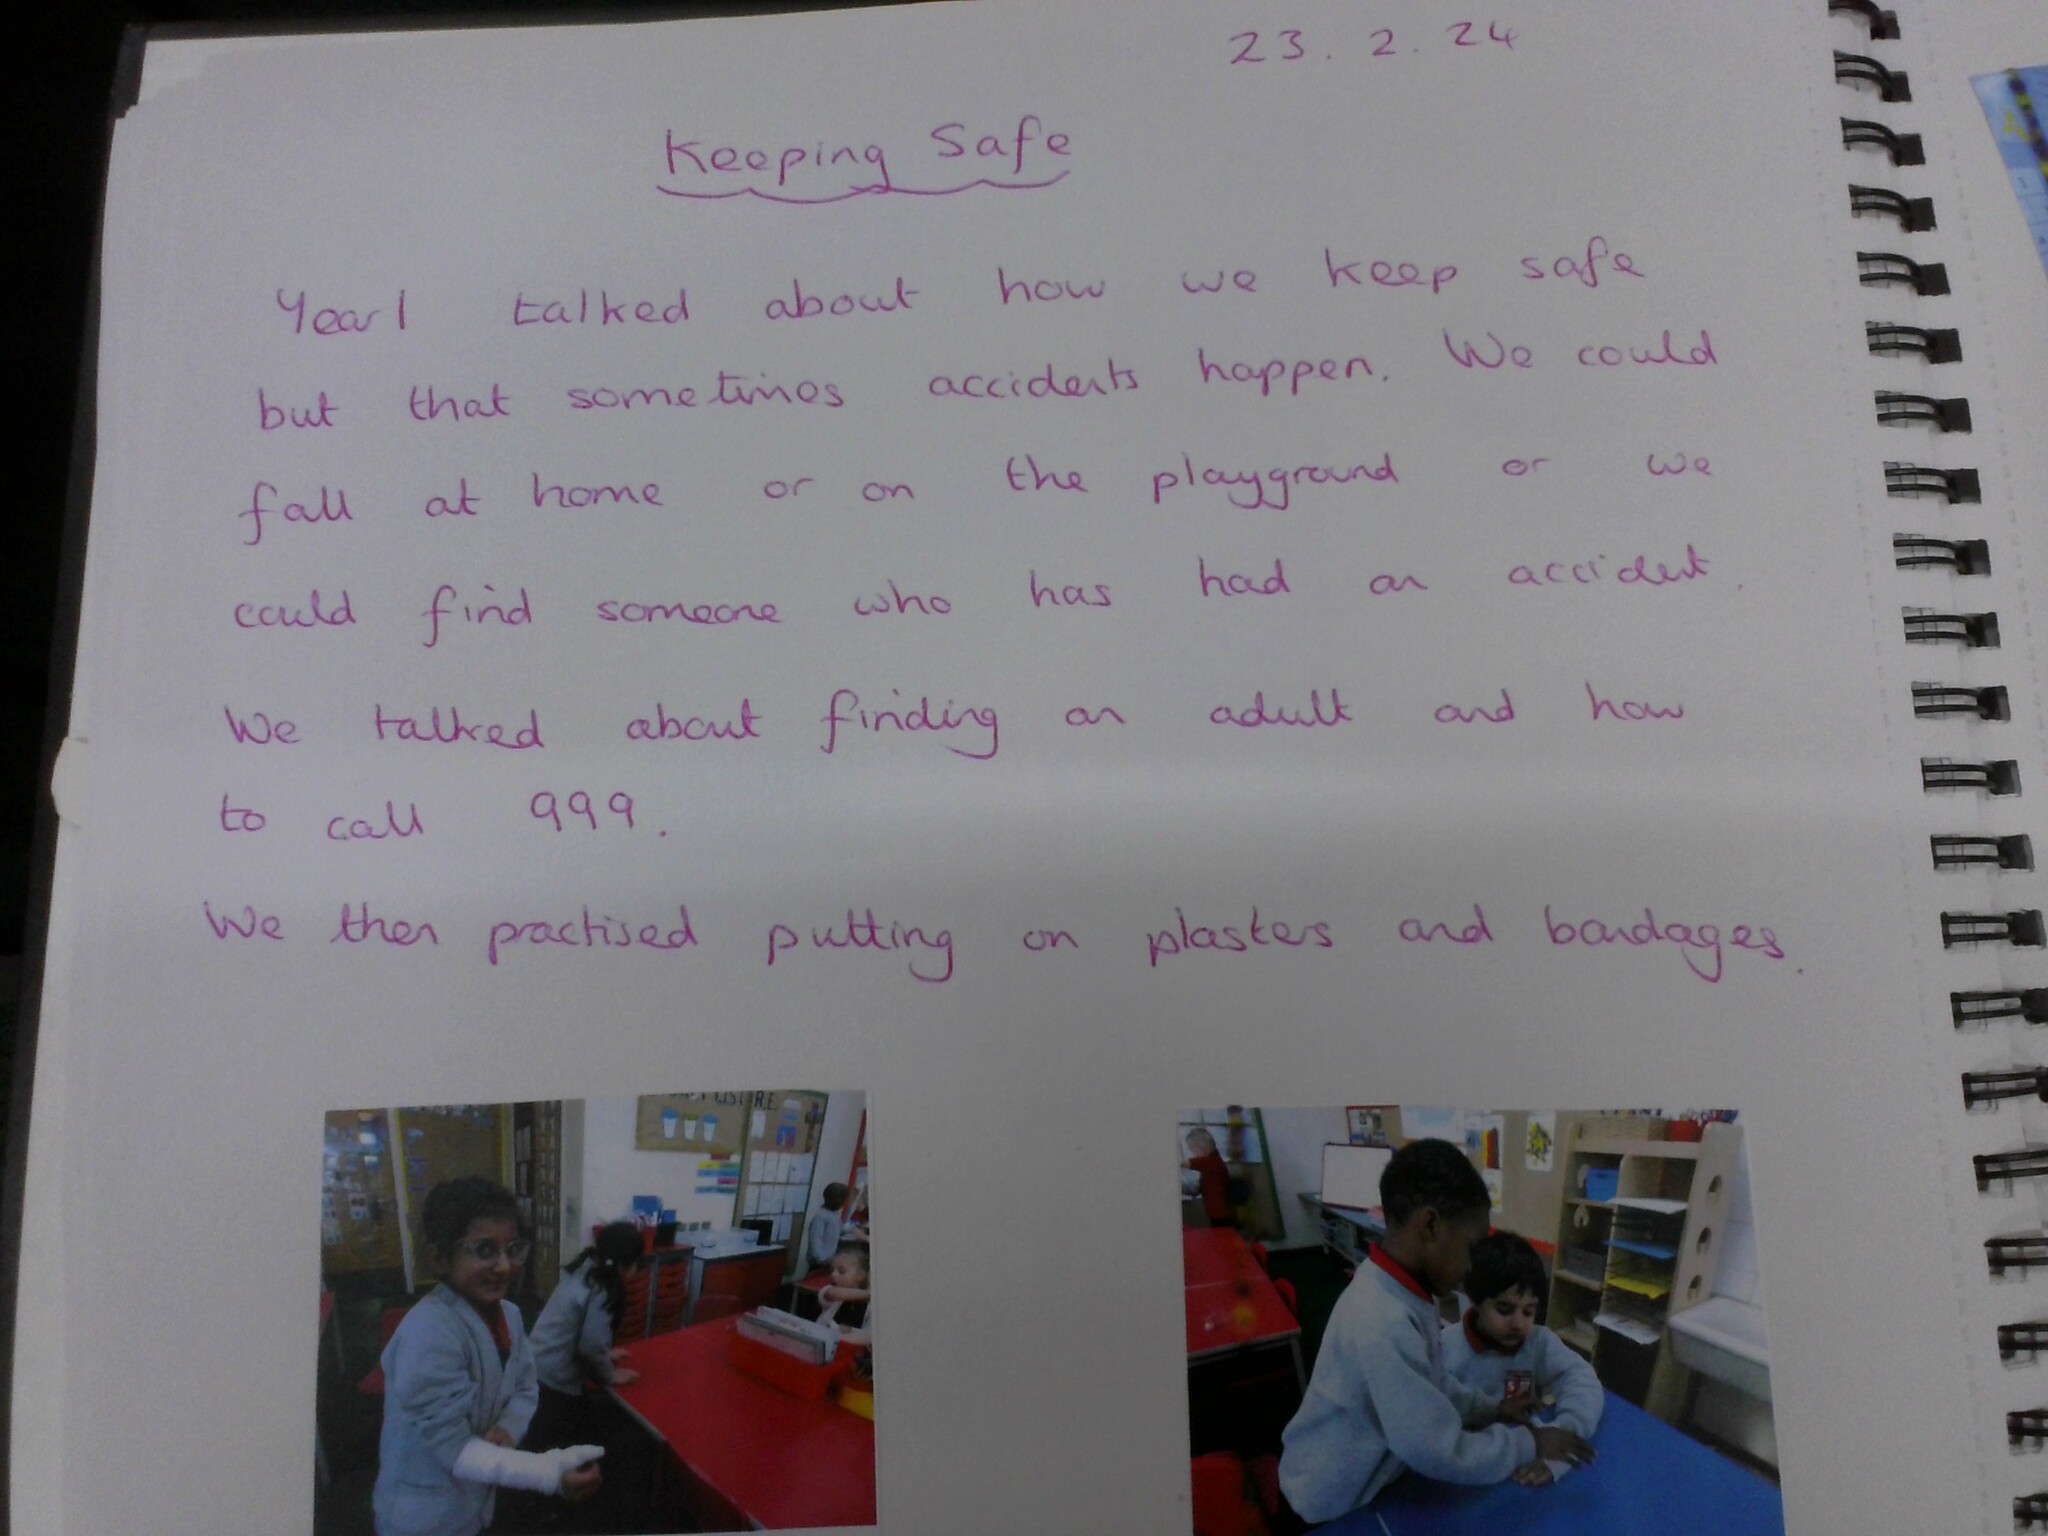 23. 2. 24
Keeping Safe
Year 1 talked about how we keep safe
but that sometimes accidents happen. We could
fall at home or on the playground or we
could find someone who has had an accident.
We talked about finding an adult and how
to call 999.
We then practised putting on plasters and bandages.